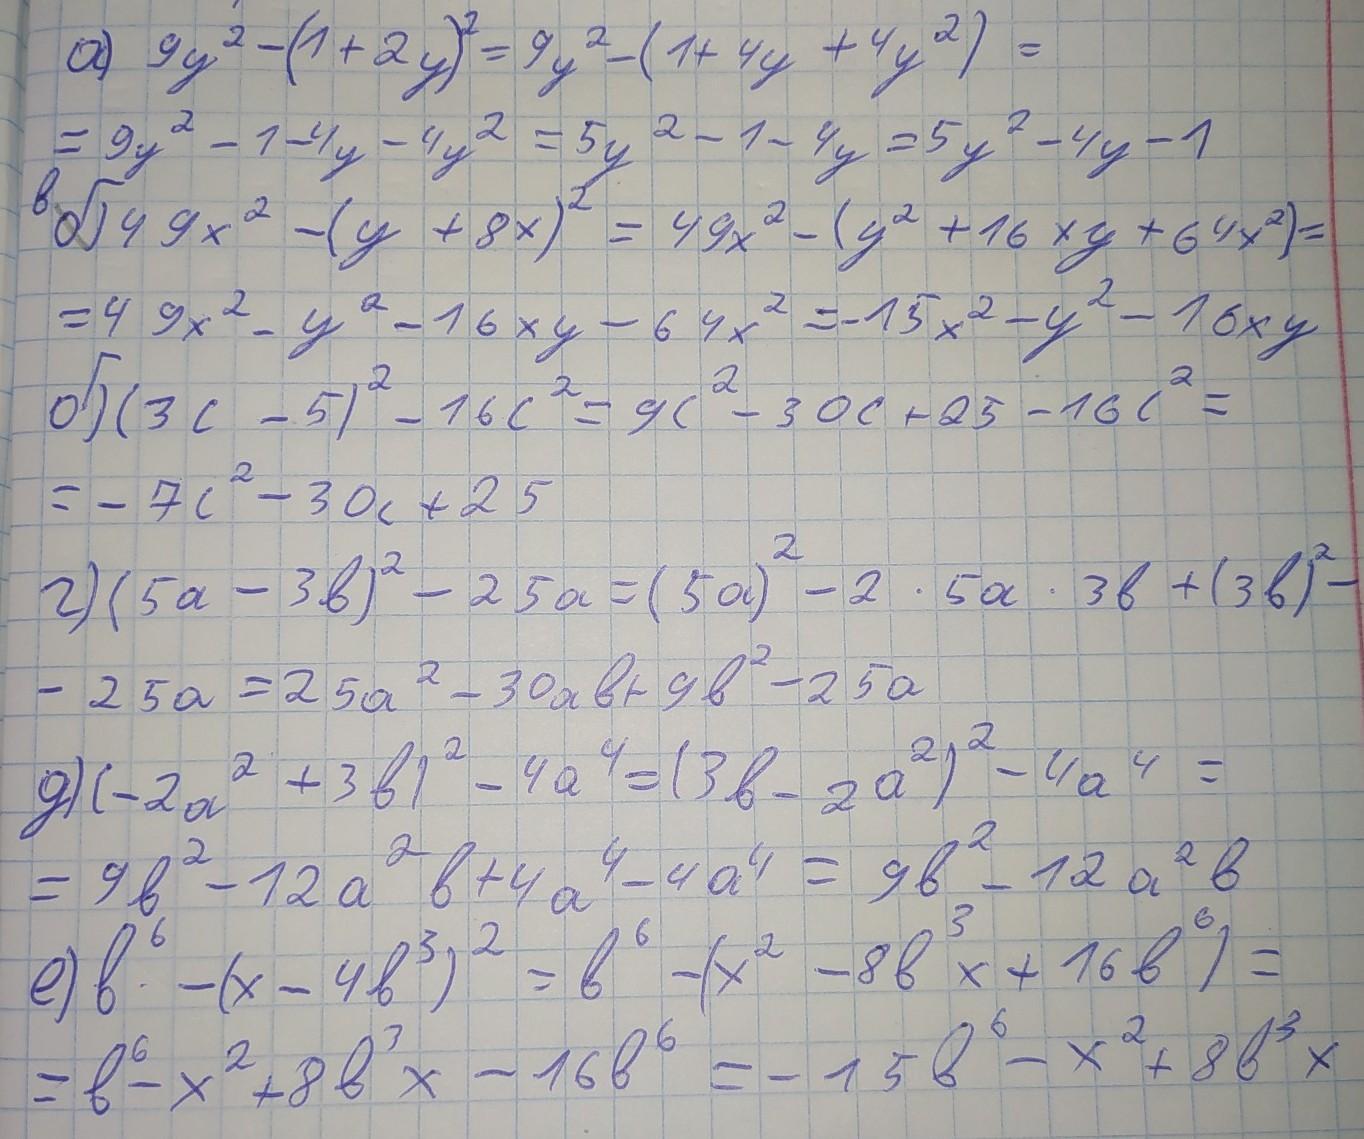 а) 9y² - (1 + 2y)² = 9y² - (1 + 4y + 4y²) =
= 9y² - 1 - 4y - 4y² = 5y² - 1 - 4y = 5y² - 4y - 1
в) 49x² - (y + 8x)² = 49x² - (y² + 16xy + 64x²) =
= 49x² - y² - 16xy - 64x² = -15x² - y² - 16xy
б) (3c - 5)² - 16c² = 9c² - 30c + 25 - 16c² =
= -7c² - 30c + 25
г) (5a - 3b)² - 25a = (5a)² - 2 · 5a · 3b + (3b)² -
- 25a = 25a² - 30ab + 9b² - 25a
д) (-2a² + 3b)² - 4a⁴ = (3b - 2a²)² - 4a⁴ =
= 9b² - 12a²b + 4a⁴ - 4a⁴ = 9b² - 12a²b
е) b⁶ - (x - 4b³)² = b⁶ - (x² - 8b³x + 16b⁶) =
= b⁶ - x² + 8b³x - 16b⁶ = -15b⁶ - x² + 8b³x